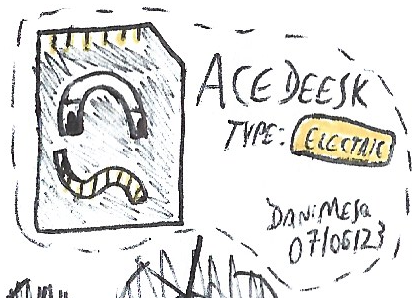 ACEDEESK
TYPE: ELECTRIC
DANIMESQ
07/06/23